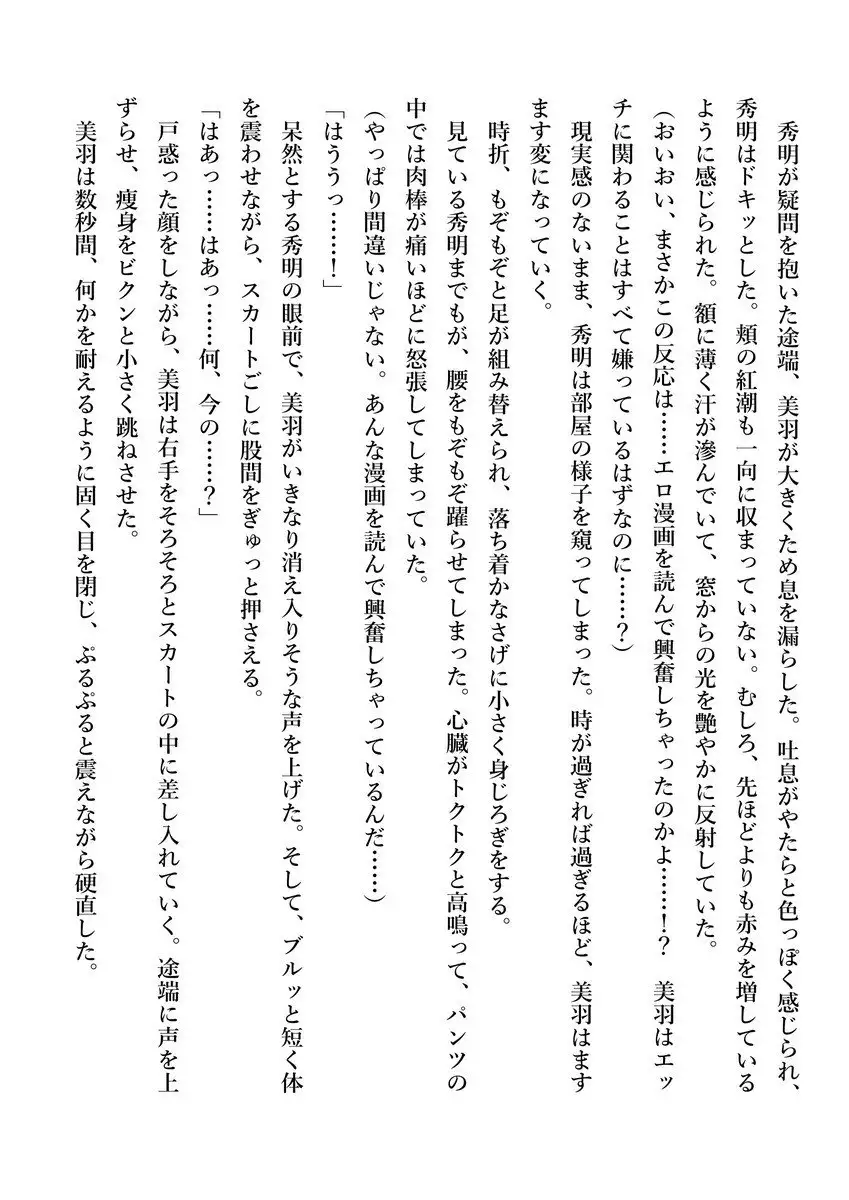 秀明が疑問を抱いた途端、美羽が大きくため息を漏らした。吐息がやたらと色っぽく感じられ、
秀明はドキッとした。頬の紅潮も一向に収まっていない。むしろ、先ほどよりも赤みを増している
ように感じられた。額に薄く汗が滲んでいて、窓からの光を艶やかに反射していた。
（おいおい、まさかこの反応は……エロ漫画を読んで興奮しちゃったのかよ……！？　美羽はエッ
チに関わることはすべて嫌っているはずなのに……？）
現実感のないまま、秀明は部屋の様子を窺ってしまった。時が過ぎれば過ぎるほど、美羽はます
ます変になっていく。
時折、もぞもぞと足が組み替えられ、落ち着かなさげに小さく身じろぎをする。
見ている秀明までもが、腰をもぞもぞ躍らせてしまった。心臓がトクトクと高鳴って、パンツの
中では肉棒が痛いほどに怒張してしまっていた。
（やっぱり間違いじゃない。あんな漫画を読んで興奮しちゃっているんだ……）
「はううっ……！」
呆然とする秀明の眼前で、美羽がいきなり消え入りそうな声を上げた。そして、ブルッと短く体
を震わせながら、スカートごしに股間をぎゅっと押さえる。
「はあっ……はあっ……何、今の……？」
戸惑った顔をしながら、美羽は右手をそろそろとスカートの中に差し入れていく。途端に声を上
ずらせ、痩身をビクンと小さく跳ねさせた。
美羽は数秒間、何かを耐えるように固く目を閉じ、ぷるぷると震えながら硬直した。